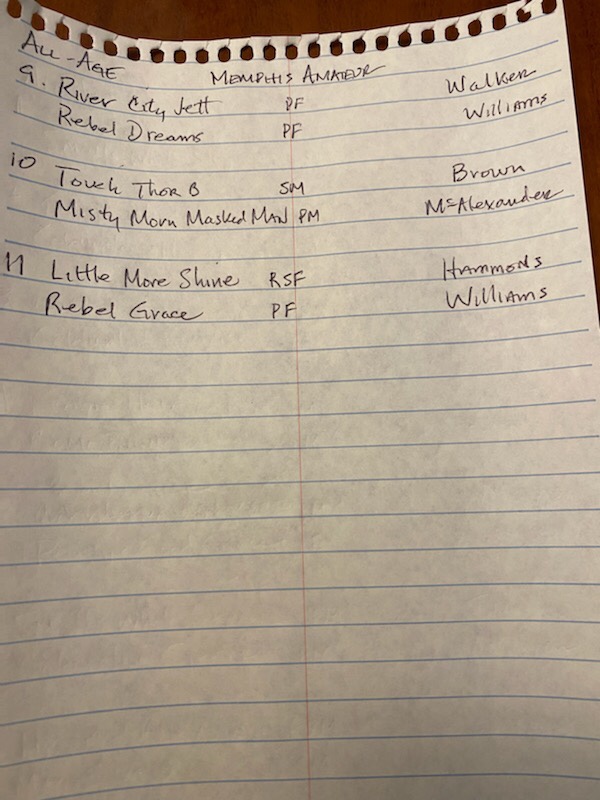 ALL-AGE MEMPHIS AMATEUR
9. River City Jett PF Walker
Rebel Dreams PF Williams
10 Touch Thor B SM Brown
Misty Morn Masked MAN PM McAlexander
11 Little More Shine RSF HAMMONDS
Rebel Grace PF Williams